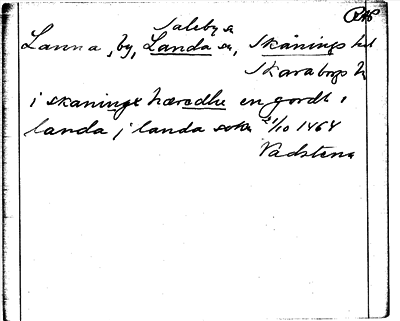 RAP
Saleby sn
Lanna, by, Landa sn, Skånings hd
Skaraborgs l
i skaninge hæredhe en gordh i
landa j landa sokn 21/10 1464
Vadstena